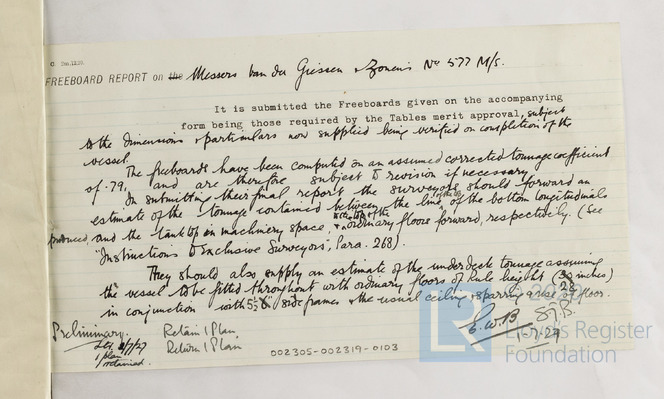 C Dm.1220.
FREEBOARD REPORT on the Messers Van der Giessen & Zonen's No 577 M/S.
It is submitted the Freeboards given on the accompanying
form being those required by the Tables merit approval, subject
to the dimensions & particulars now supplied being verified on completion of the
vessel.
The freeboards have been computed on an assumed corrected tonnage coefficient
of .79, and are therefore subject to revision if necessary.
In submitting their final report the surveyors should forward an
estimate of the tonnage contained between the line of the top of the bottom longitudinals
produced, and the tank top in machinery space, & the top of the ordinary floors forward, respectively. (See
"Instructions to Exclusive Surveyors", Para. 268).
They should also supply an estimate of the underdeck tonnage assuming
the vessel to be fitted throughout with ordinary floors of Rule height (28 inches)
in conjunction with 5½ side frames & the usual ceiling & sparring & rise of floor.
Preliminary.
Retain 1 Plan
Return 1 Plan
1 plan
retained.
002305-002319-0103
LR
© 2020
Lloyd's Register
Foundation